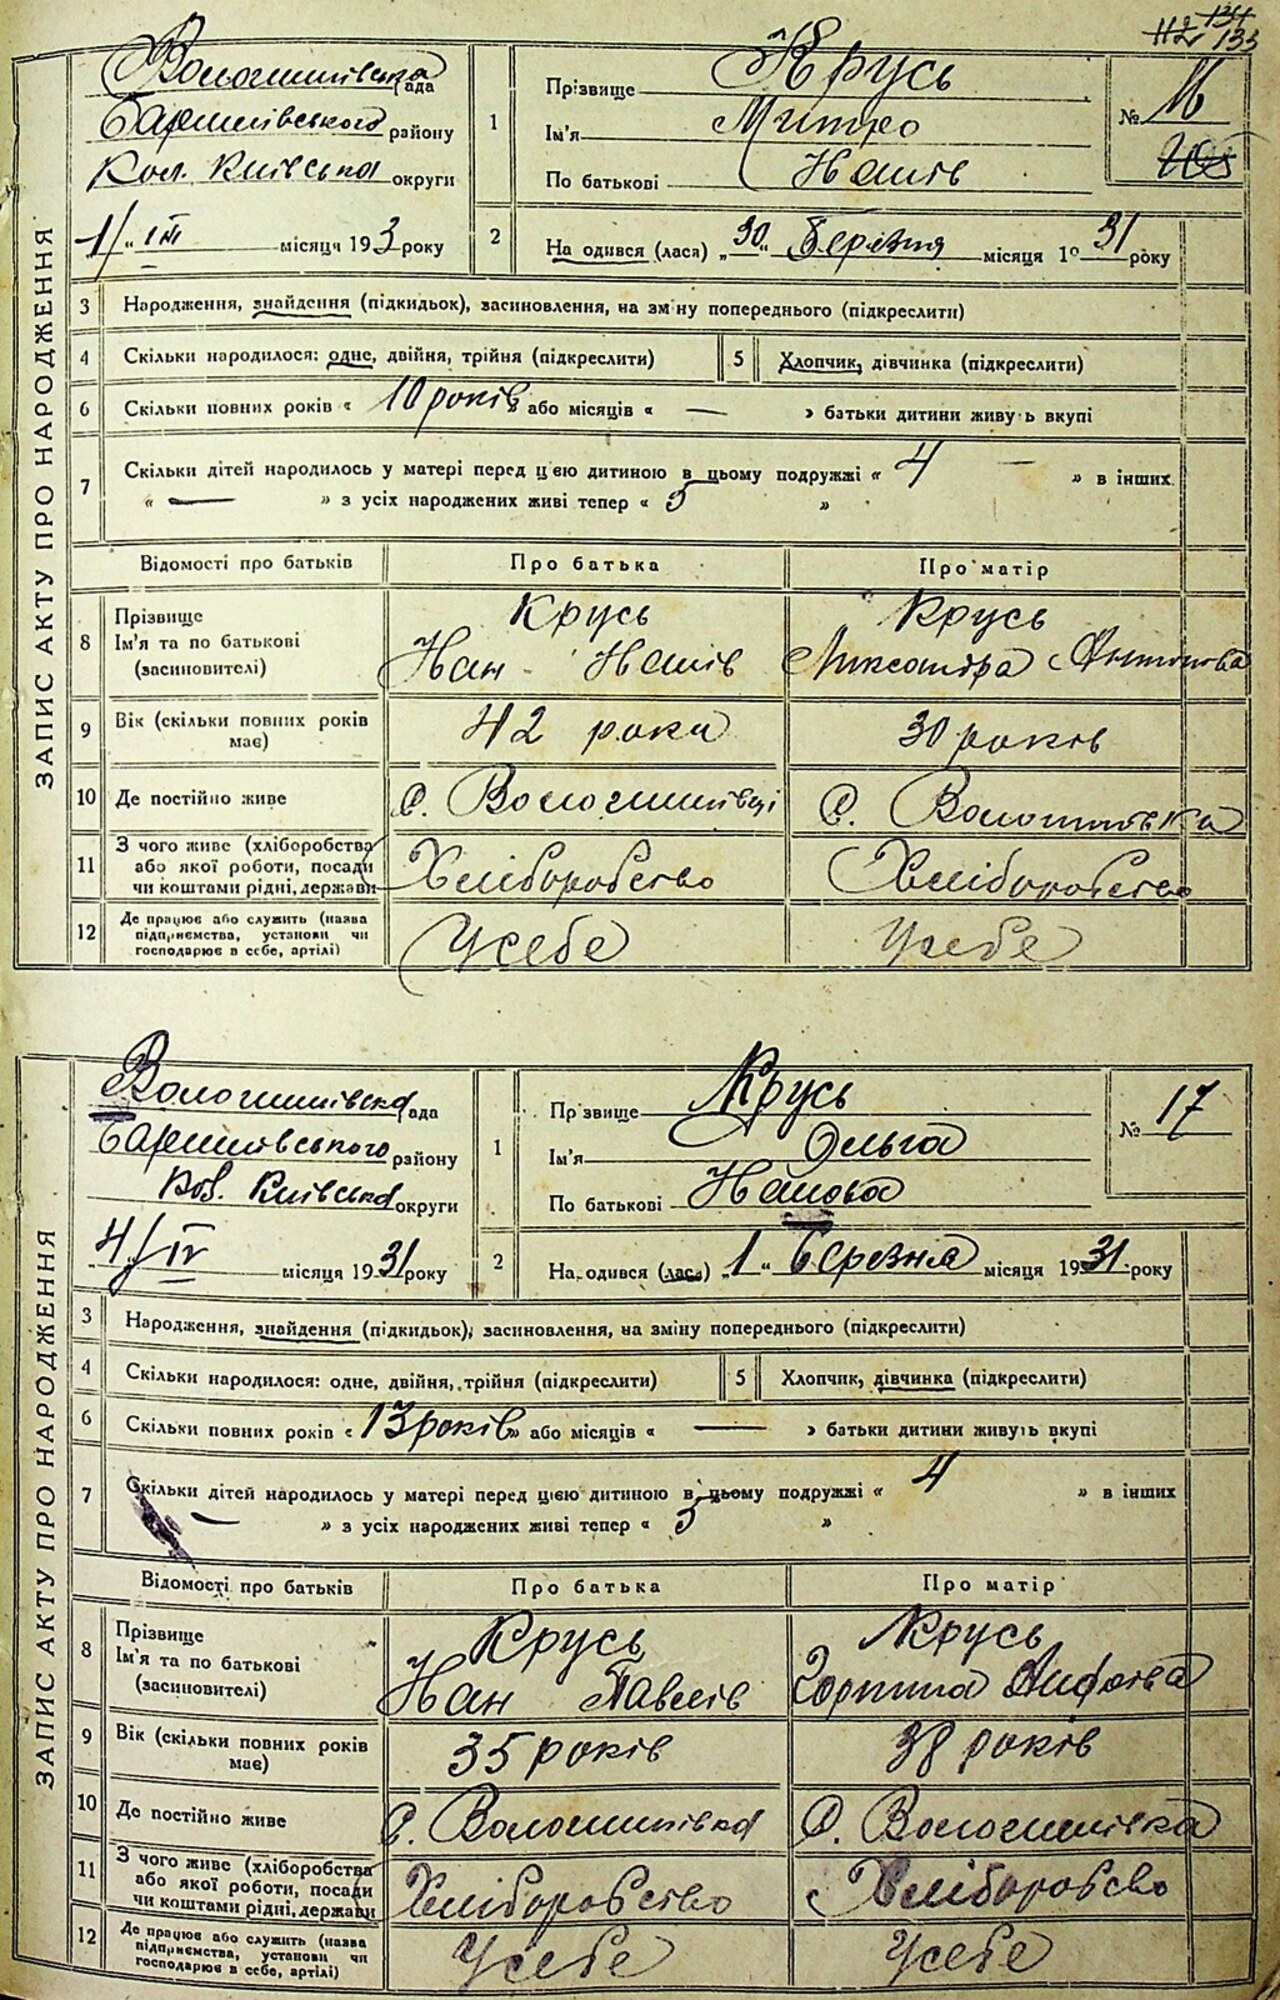 133
ЗАПИС АКТУ ПРО НАРОДЖЕННЯ
Волошинівська рада
Баришівського району
Кол. Київська округи
1/ІІІ місяця 193 року
1 Прізвище Крусь
Ім'я Митро
По батькові Іванів
№ 16
2 На одився (лася) „30“ Березня місяця 1931 року
3 Народження, знайдення (підкидьок), засиновлення, на зміну попереднього (підкреслити)
4 Скільки народилося: одне, двійня, трійня (підкреслити)
5 Хлопчик, дівчинка (підкреслити)
6 Скільки повних років « 10 років » або місяців « — » батьки дитини живуть вкупі
7 Скільки дітей народилось у матері перед цією дитиною в цьому подружжі « 4 — » в інших
« — » з усіх народжених живі тепер « 5 »
Відомості про батьків Про батька Про матір
8 Прізвище Ім'я та по батькові (засиновителі)
Крусь Іван Іванів
Крусь Антонова
9 Вік (скільки повних років має) 42 роки 30 років
10 Де постійно живе С. Волошинівці С. Волошинівка
11 З чого живе (хліборобства або якої роботи, посади чи коштами рідні, держави Хліборобство Хліборобство
12 Де працює або служить (назва підприємства, установи чи господарює в себе, артілі) У себе У себе
ЗАПИС АКТУ ПРО НАРОДЖЕННЯ
Волошинівська рада
Баришівського району
Кол. Київська округи
„4“/IV місяця 1931 року
1 Прізвище Крусь
Ім'я Ольга
По батькові Іванова
№ 17
2 На одився (лася) „1“ Березня місяця 1931 року
3 Народження, знайдення (підкидьок), засиновлення, на зміну попереднього (підкреслити)
4 Скільки народилося: одне, двійня, трійня (підкреслити)
5 Хлопчик, дівчинка (підкреслити)
6 Скільки повних років « 13 років » або місяців « — » батьки дитини живуть вкупі
7 Скільки дітей народилось у матері перед цією дитиною в цьому подружжі « 4 » в інших
— » з усіх народжених живі тепер « 3 »
Відомості про батьків Про батька Про матір
8 Прізвище Ім'я та по батькові (засиновителі)
Крусь Іван Павлів
Крусь Горпина
9 Вік (скільки повних років має) 35 років 38 років
10 Де постійно живе С. Волошинівка С. Волошинівка
11 З чого живе (хліборобства або якої роботи, посади чи коштами рідні, держави Хліборобство Хліборобсво
12 Де працює або служить (назва підприємства, установи чи господарює в себе, артілі) У себе У себе